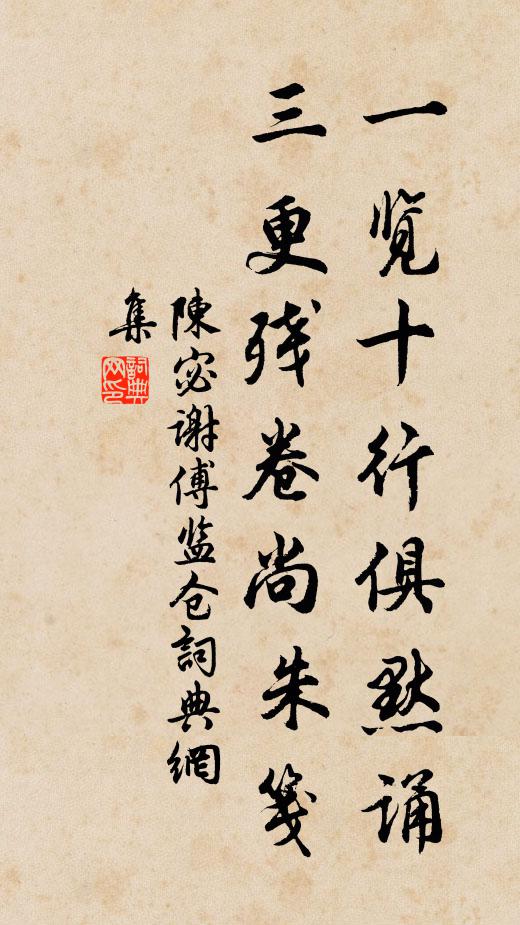 一览十行俱默诵
三更残卷尚朱笺
陳宓谢傅监仓詞典網
集
詞典
网印